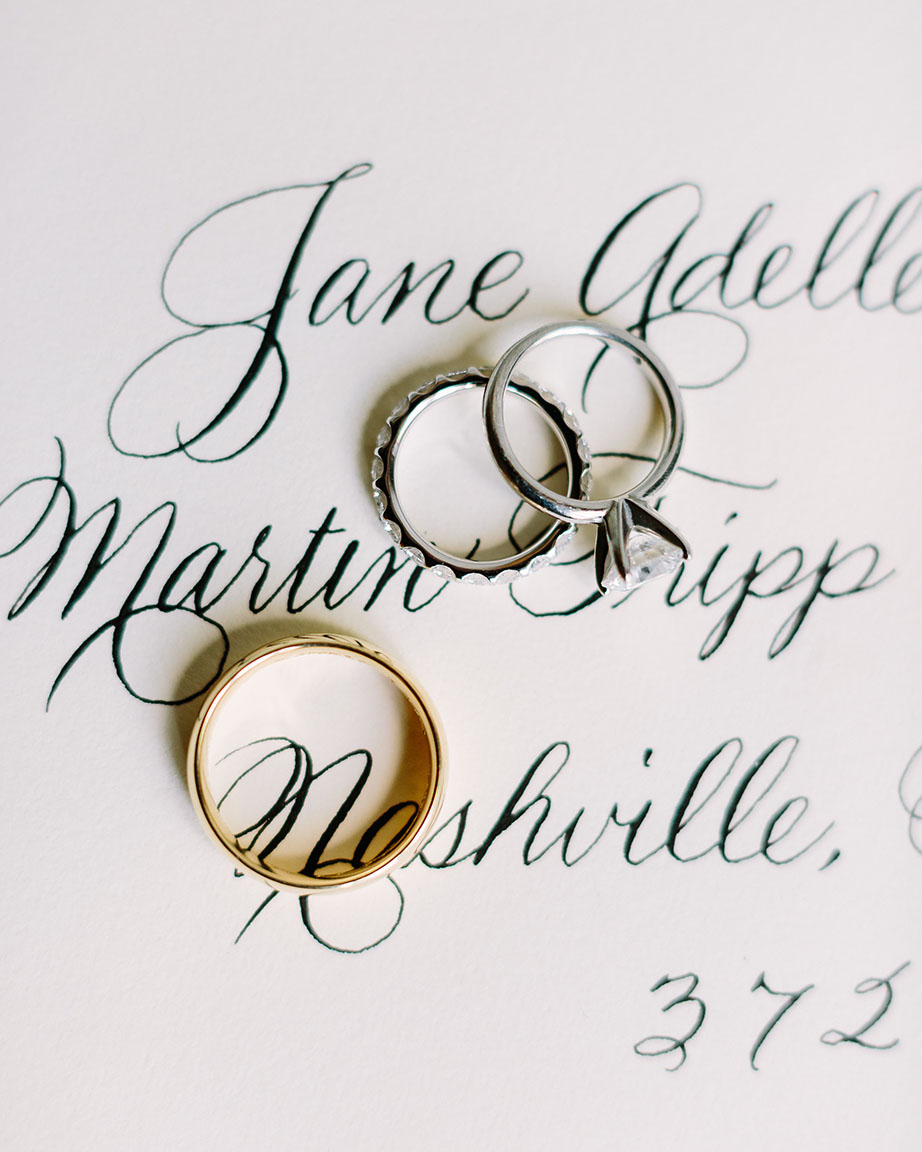 Jane Adelle
Martin Tripp
Nashville,
372